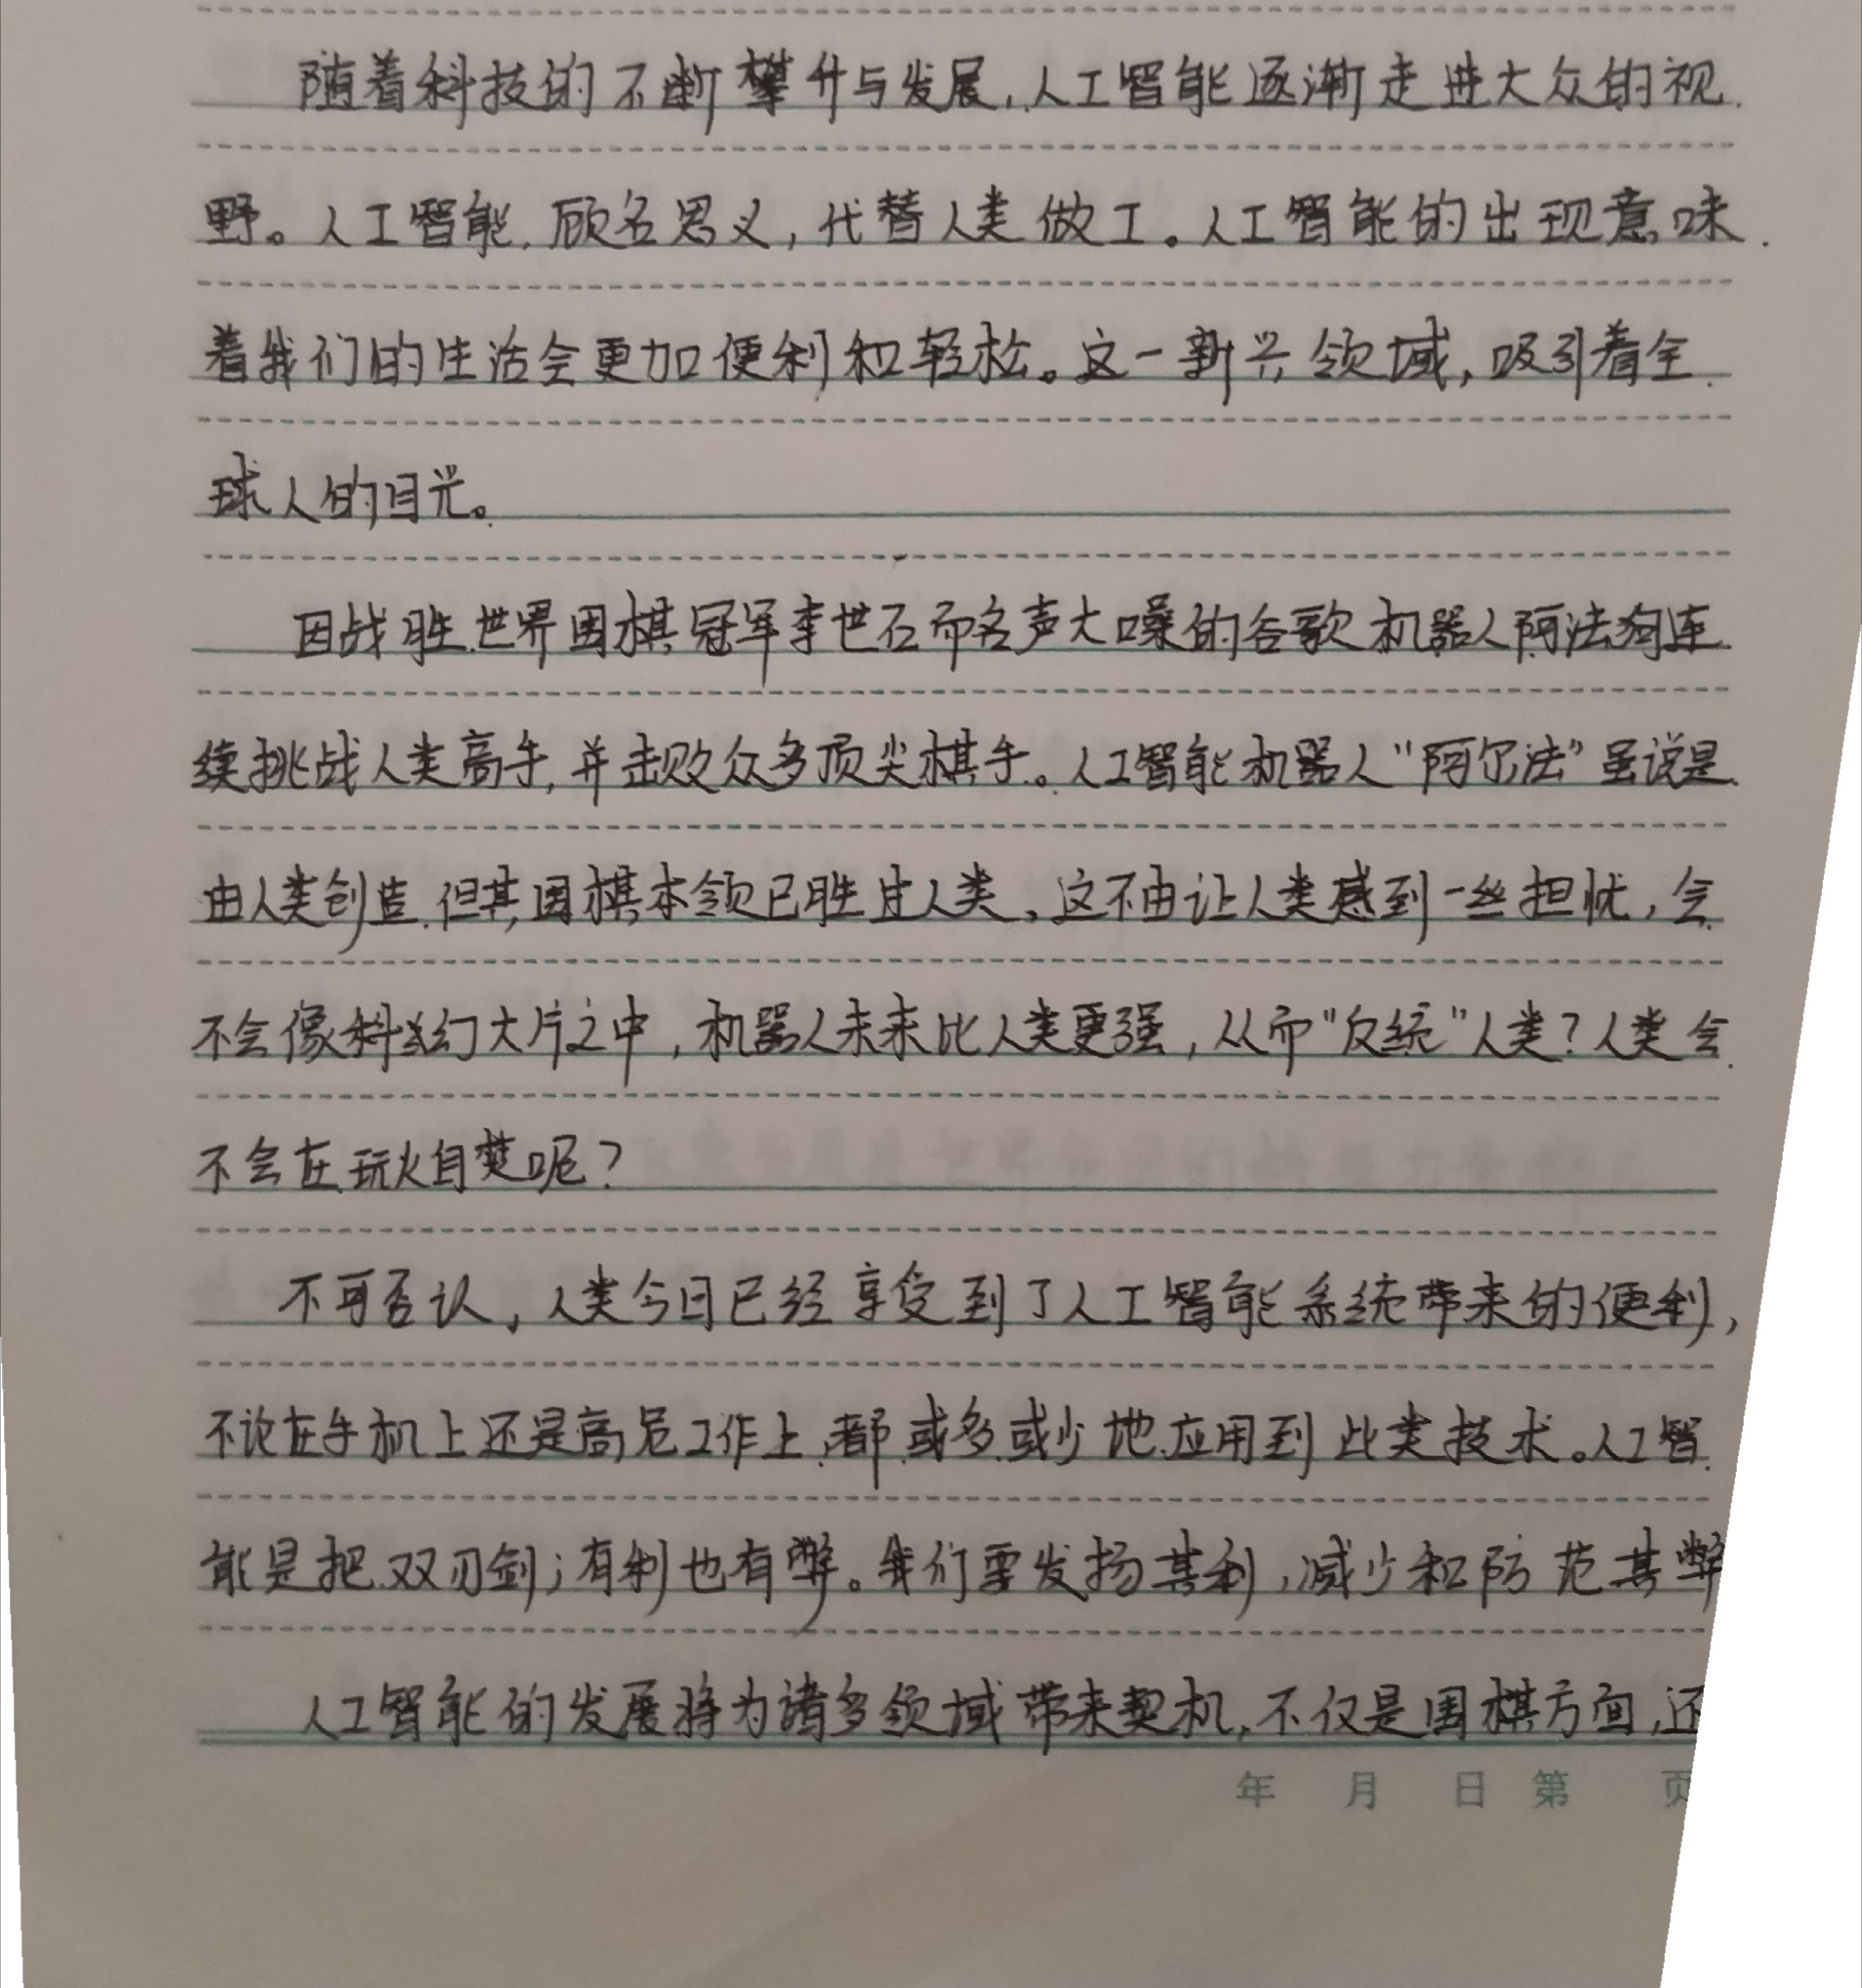 随着科技的不断攀升与发展,人工智能逐渐走进大众的视
野。人工智能,顾名思义,代替人类做工。人工智能的出现意味
着我们的生活会更加便利和轻松。这一新兴领域,吸引着全
球人的目光。
因战胜世界围棋冠军李世石而名声大噪的谷歌机器人阿法狗连
续挑战人类高手,并击败众多顶尖棋手。人工智能机器人“阿尔法”虽说是
由人类创造,但其围棋本领已胜过人类,这不由让人类感到一丝担忧,会
不会像科幻大片之中,机器人未来比人类更强,从而“反统”人类?人类会
不会在玩火自焚呢?
不可否认,人类今日已经享受到了人工智能系统带来的便利,
不论在手机上还是高危工作上,都或多或少地应用到此类技术。人工智
能是把双刃剑;有利也有弊。我们要发扬其利,减少和防范其弊
人工智能的发展将为诸多领域带来契机,不仅是围棋方面,还
年 月 日 第 页